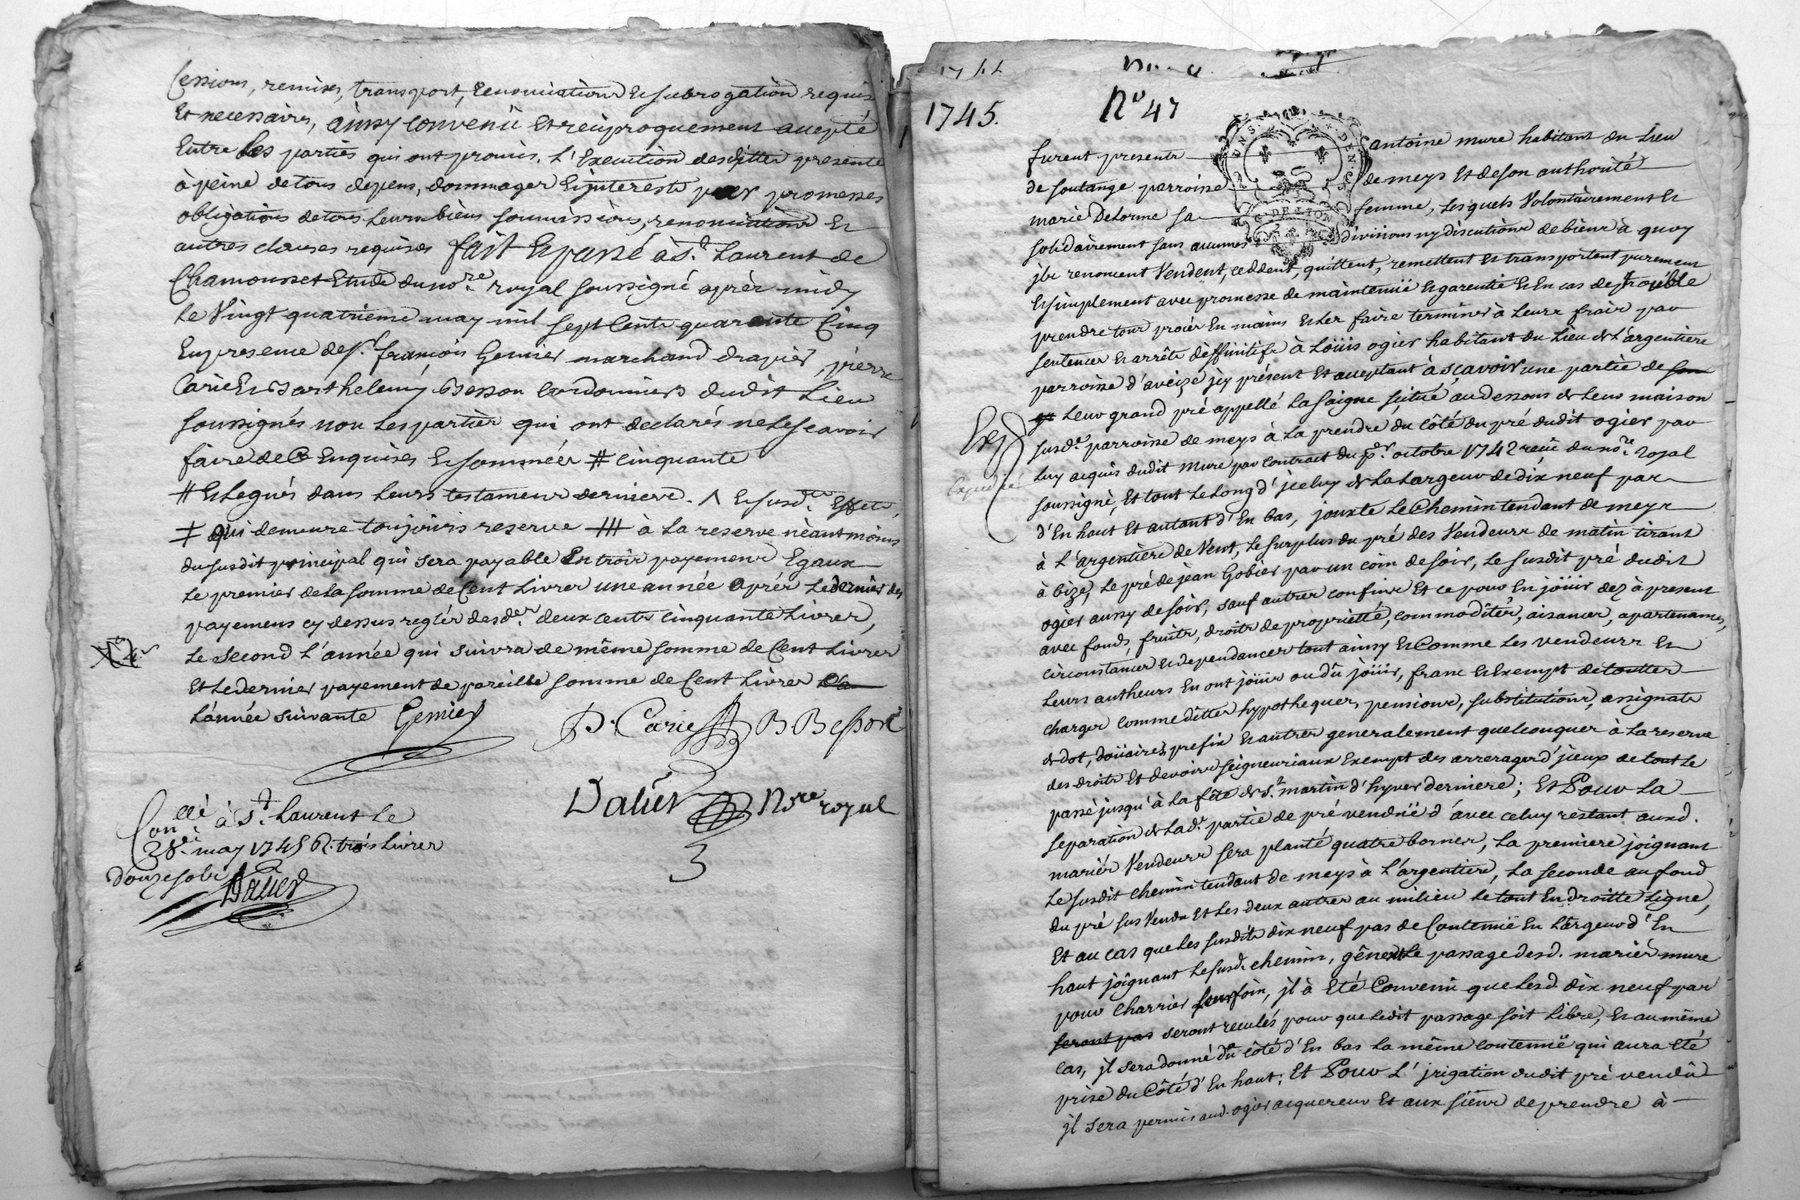 Cessions, remises, transport, Renonciations Et subrogation requis
Et necessaires, ainsy convenu Et reciproquement accepté
Entre Les parties qui ont promis L'Execution desdittes presente
à peine de tous depens, dommages Et interests par promesses
obligations de tous Leurs biens soumissions, renonciations Et
autres clauses requises fait Et passé à St. Laurent de
Chamousset Etude du nore. royal soussigné après midy
Le Vingt quatrieme may mil sept Cents quarante Cinq
En presence de sr. françois Gemier marchand drapier, pierre
Carie Et Barthelemy Besson Cordonniers dudit Lieu
soussignés non Les parties qui ont declarés ne Le sçavoir
faire de Ce Enquises Et sommées # cinquante
# Et Legués dans Leurs testaments derniers. Λ Et susd. Effets,
ǂ qui demeure toujours reservé ⧻ à La reserve néantmoins
du susdit principal qui sera payable En trois payements Egaux
Le premier de La somme de Cent Livres une année après Le dernier des
payemens cy dessus reglés desd. deux cents cinquante Livres,
Le second L'année qui suivra de même somme de Cent Livres
Et Le dernier payement de pareille somme de Cent Livres
L'année suivante Gemier
P. Carie B Besson
Dalier Nore royal
Conllé à St. Laurent Le
28e. may 1745 R. trois Livres
douze sols
Dalier
3
1745.
No 47
furent presents antoine mure habitant du Lieu
de soulange parroisse de meys Et de son authorité
marie Delorme sa femme, Lesquels Volontairement Et
solidairement sans aucunes divisions ny discutions de biens à quoy
jls renoncent Vendent, ceddent, quittent, remettent Et transportent purement
Et simplement avec promesse de maintenüe Et garentie Et En cas de trouble
prendre tous procès En mains Et Les faire terminer à Leurs frais par
sentences Et arrêts déffinitifs à Loüis ogier habitant du Lieu de L'argentiere
parroisse d'aveize jcy présent Et acceptant à sçavoir une partie de
Leur grand pré appellé La saigne scitué au dessous de Leur maison
susde. parroisse de meys à La prendre du côté du pré dudit ogier par
Luy acquis dudit mure par contract du pr. octobre 1742 reçu du nore. royal
soussigné, Et tout Le Long d'jceluy de La Largeur de dix neuf pas
d'En haut Et autant d'En bas, jouxte Le Chemin tendant de meys
à L'argentiere de Vent, Le surplus du pré des Vendeurs de matin tirant
à bize, Le pré de jean Gobier par un coin de soir, Le susdit pré dudit
ogier aussy de soir, sauf autres confins Et ce pour En joüir dez à present
avec fonds, fruits, droits de proprietté, commodités, aisances, apartenances,
circonstances Et dependances tout ainsy Et Comme Les vendeurs Et
Leurs autheurs En ont joüir ou dû joüir, franc Et Exempt de toutes
charges comme dettes hypotheques, pensions, substitutions, assignats
de dot, doüaires prefix Et autres generalement quelconques à La reserve
des droits Et devoirs seigneuriaux Exempt des arrerages d'jceux de tout Le
passé jusqu'à La fête de St. martin d'hyver derniere; Et Pour La
separation de Lade. partie de pré vendüe d'avec celuy restant auxd.
mariés Vendeurs sera planté quatre bornes, La premiere joignant
Le susdit chemin tendant de meys à L'argentiere, La seconde au fond
du pré sus Vendu Et Les deux autres au milieu Le tout En droitte Ligne,
Et au cas que Les susdits dix neuf pas de Contenüe En Largeur d'En
haut joignant Le susd. chemin, gênent Le passage desd. mariés mure
pour Charrier Leur foin, jl à Eté Convenu que Lesd. dix neuf pas
seront pas seront reculés pour que Ledit passage soit Libre, Et au même
cas, jl sera donné du côté d'En bas La même contenüe qui aura Eté
prise du Côté d'En haut; Et Pour L'jrigation dudit pré vendu
jl sera permis aud. ogier acquereur Et aux siens de prendre à
Exp.
Expedié